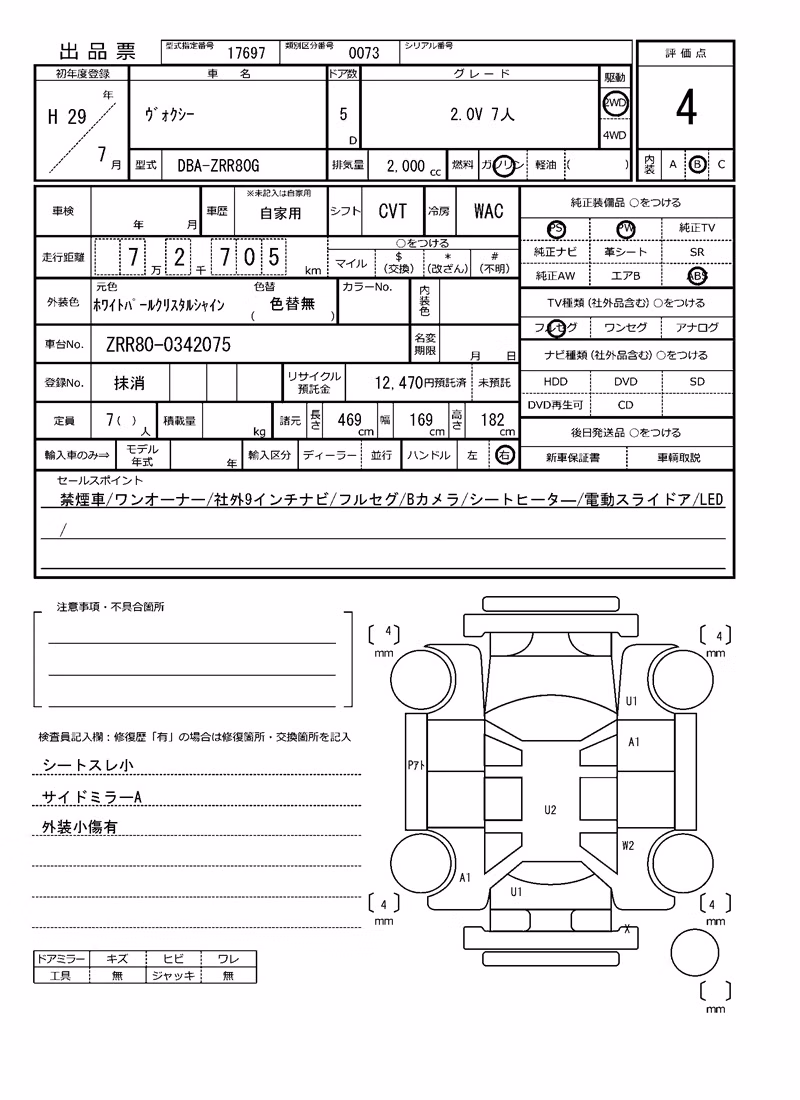 出品票 型式指定番号 17697 類別区分番号 0073 シリアル番号
評価点
初年度登録 車名 ドア数 グレード 駆動
H 29 年 7 月 ヴォクシー 5 D 2.0V 7人 2WD 4WD
4
型式 DBA-ZRR80G 排気量 2,000 cc 燃料 ガソリン 軽油 ( )
内装 A B C
車検 年 月 車歴 ※未記入は自家用 自家用 シフト CVT 冷房 WAC
純正装備品 ○をつける
PS PW 純正TV
走行距離 7 万 2 千 7 0 5 km ○をつける
マイル $ (交換) * (改ざん) # (不明)
純正ナビ 革シート SR
純正AW エアB ABS
外装色 元色 ホワイトパールクリスタルシャイン 色替 ( 色替無 ) カラーNo. 内装色
TV種類(社外品含む)○をつける
フルセグ ワンセグ アナログ
車台No. ZRR80-0342075 名変期限 月 日
ナビ種類(社外品含む)○をつける
登録No. 抹消 リサイクル預託金 12,470円預託済 未預託
HDD DVD SD
DVD再生可 CD
定員 7( ) 人 積載量 kg 諸元 長さ 469 cm 幅 169 cm 高さ 182 cm
後日発送品 ○をつける
輸入車のみ⇒ モデル年式 年 輸入区分 ディーラー 並行 ハンドル 左 右
新車保証書 車輌取説
セールスポイント
禁煙車/ワンオーナー/社外9インチナビ/フルセグ/Bカメラ/シートヒーター/電動スライドア/LED
/
注意事項・不具合箇所
検査員記入欄:修復歴「有」の場合は修復箇所・交換箇所を記入
シートスレ小
サイドミラーA
外装小傷有
ドアミラー キズ ヒビ ワレ
工具 無 ジャッキ 無
4 mm
4 mm
U1
A1
Pアト
U2
W2
A1
U1
4 mm
4 mm
X
mm